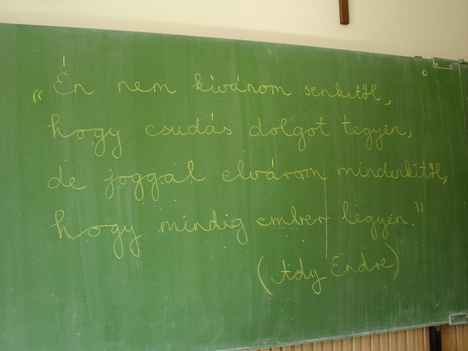 „Én nem kívánom senkitől,
hogy csudás dolgot tegyen,
de joggal elvárom mindenkitől,
hogy mindig ember légyen.”
(Ady Endre)